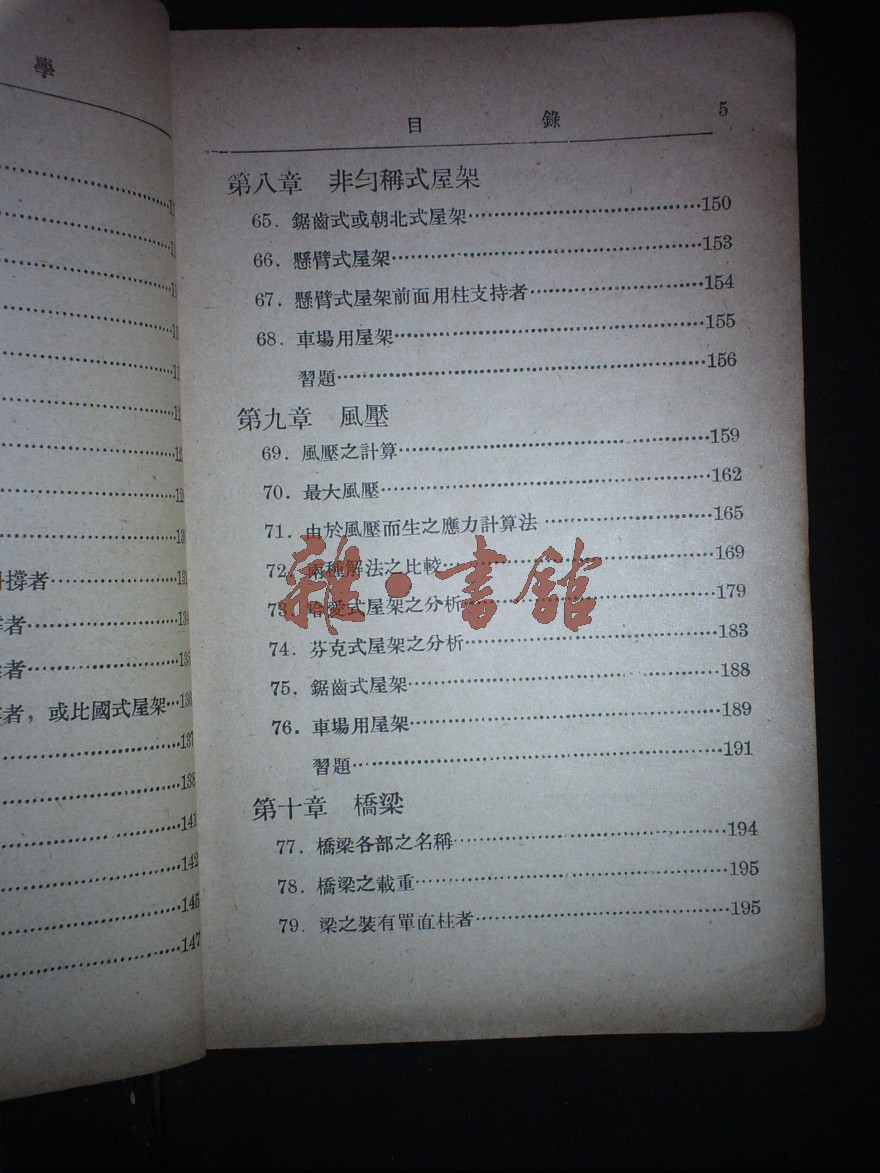 學
11
11
11
11
11
12
12
12
130
撐者……131
者……134
者……135
者，或比國式屋架…136
137
138
141
142
145
147
目 錄 5
第八章 非勻稱式屋架
65. 鋸齒式或朝北式屋架……150
66. 懸臂式屋架……153
67. 懸臂式屋架前面用柱支持者……154
68. 車場用屋架……155
習題……156
第九章 風壓
69. 風壓之計算……159
70. 最大風壓……162
71. 由於風壓而生之應力計算法……165
72. 兩種解法之比較……169
73. 哈愛式屋架之分析……179
74. 芬克式屋架之分析……183
75. 鋸齒式屋架……188
76. 車場用屋架……189
習題……191
第十章 橋梁
77. 橋梁各部之名稱……194
78. 橋梁之載重……195
79. 梁之裝有單直柱者……195
雜·書館